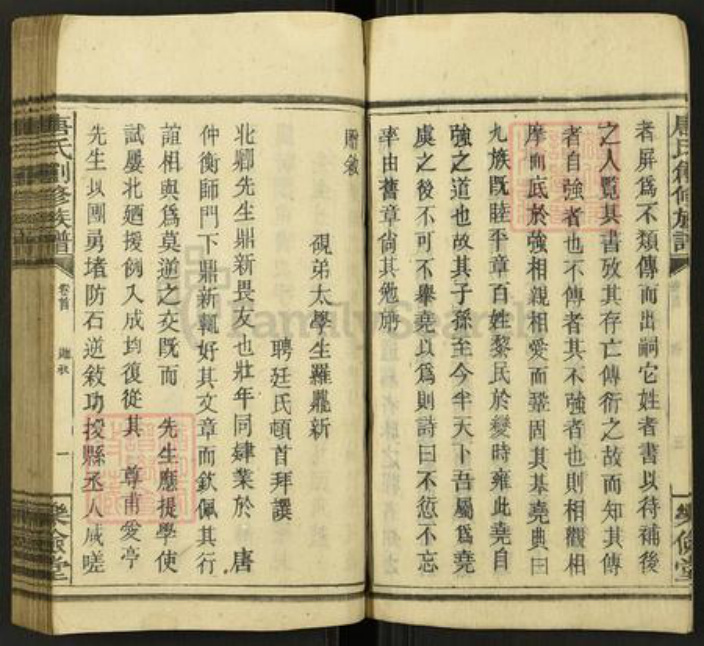 者屏爲不類傳而出嗣它姓者書以待補後
之人覽其書攷其存亡傳衍之故而知其傳
者自強者也不傳者其不強者也則相觀相
摩而底於強相親相愛而鞏固其基堯典曰
九族既睦平章百姓黎民於變時雍此堯自
強之道也故其子孫至今半天下吾屬爲堯
虞之後不可不舉堯以爲則詩曰不愆不忘
率由舊章尙其勉旃
唐氏創修族譜
樂儉堂
贈敘
硯弟太學生羅鼎新
聘廷氏頓首拜譔
北鄉先生鼎新畏友也壯年同肄業於 唐
仲衡師門下鼎新輒好其文章而欽佩其行
誼相與爲莫逆之交既而 先生應提學使
試屢北廼援例入成均復從其 尊甫愛亭
先生以團勇堵防石逆敘功授縣丞人咸嗟
唐氏創修族譜
卷首
一
樂儉堂
FamilySearch